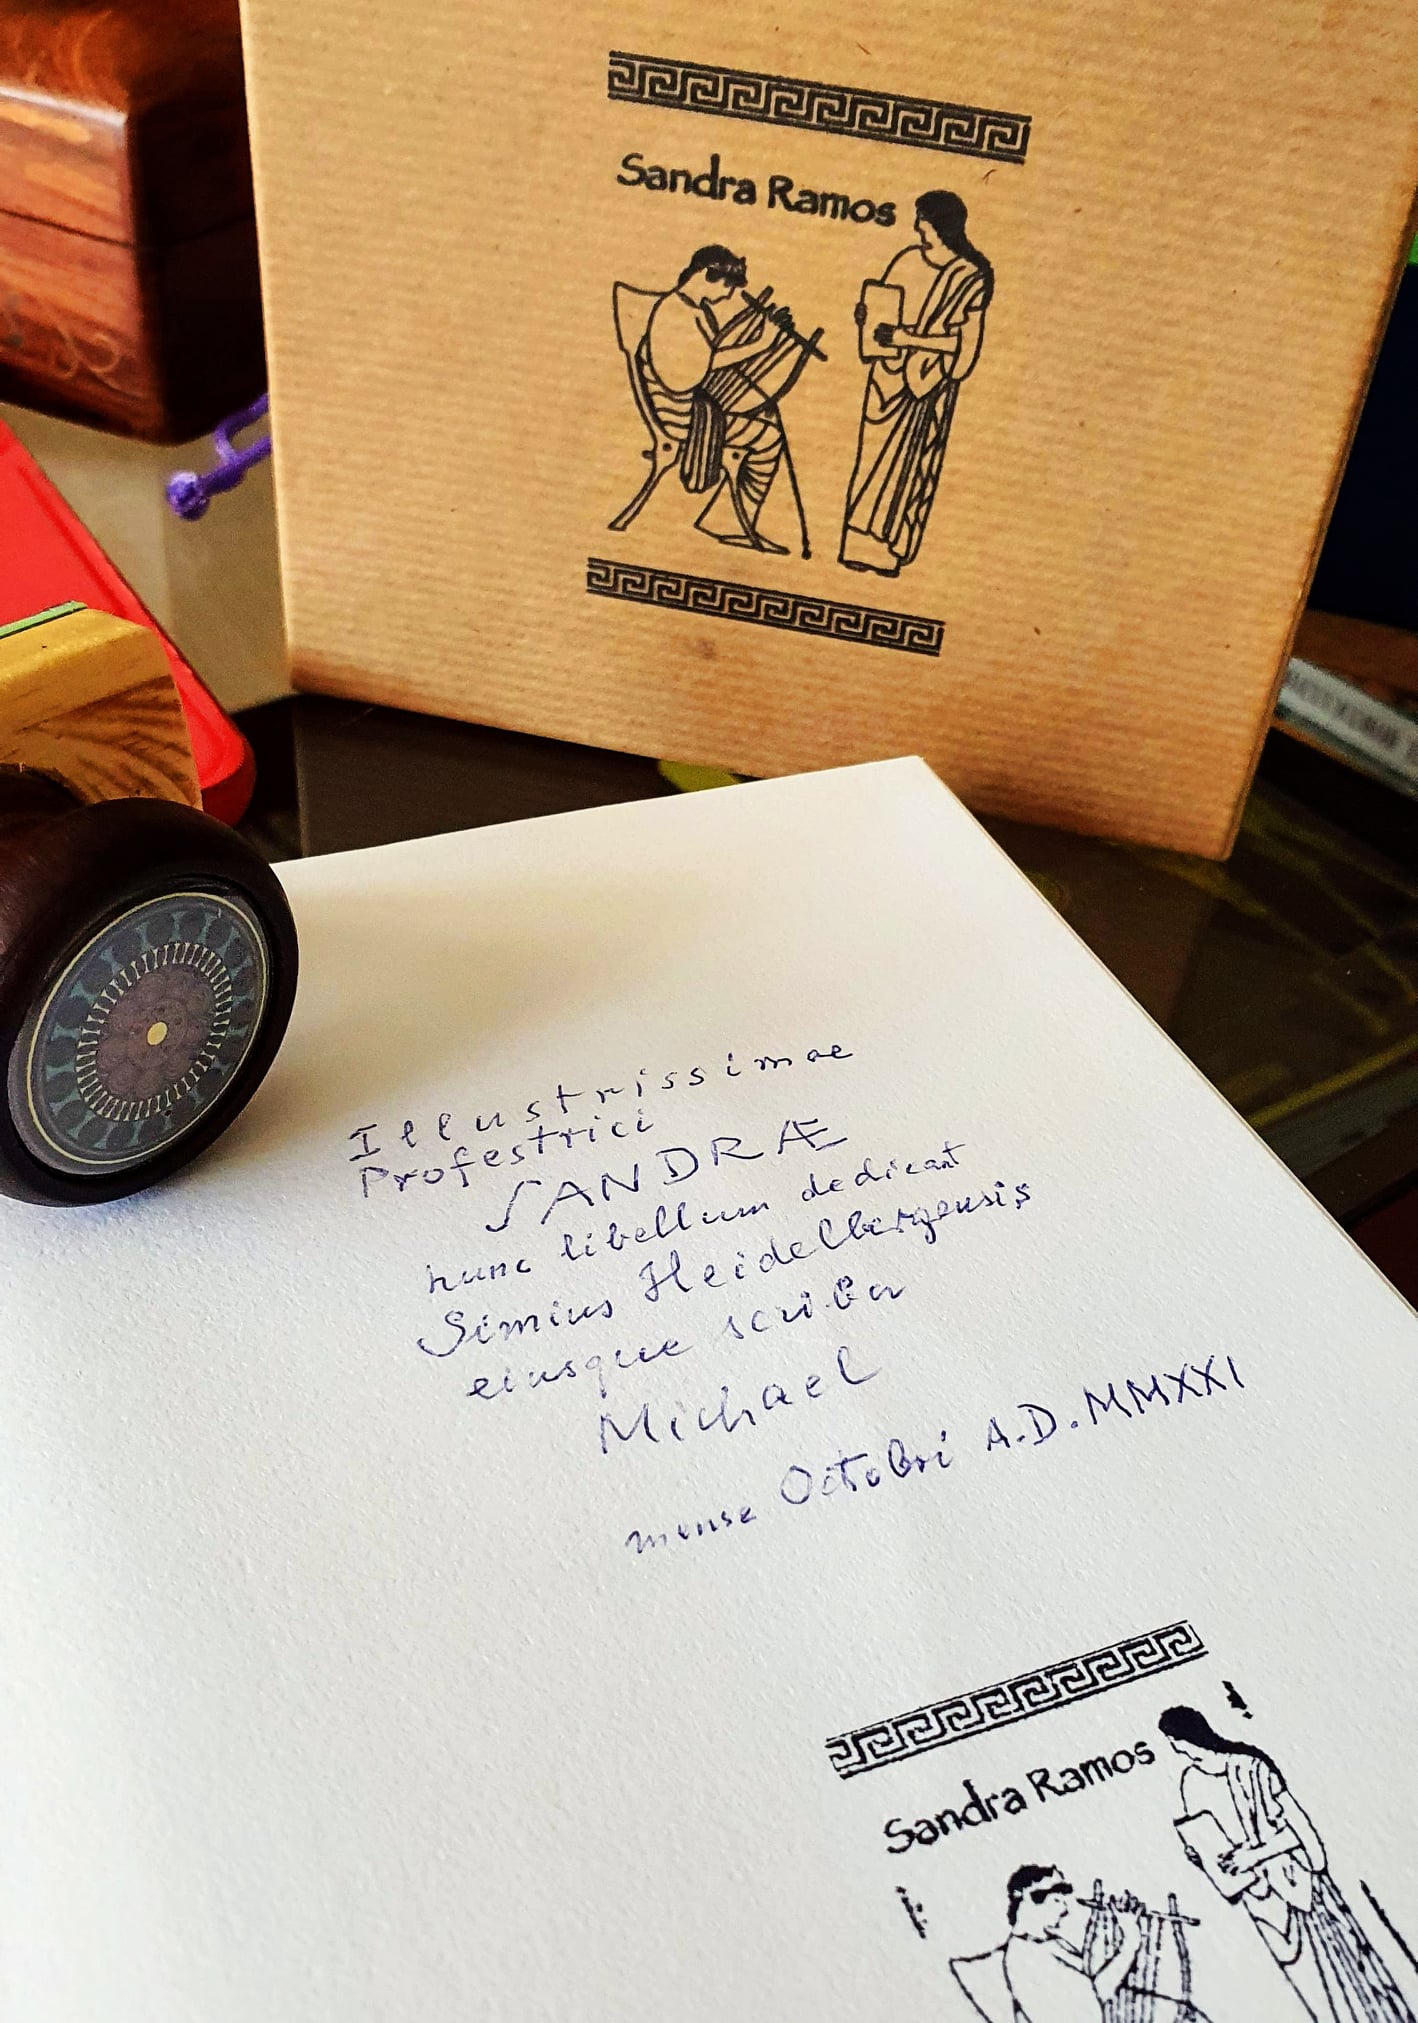 Sandra Ramos
Illustrissimae
Profestrici
SANDRÆ
hunc libellum dedicant
Simius Heidelbergensis
eiusque scriba
Michael
mense Octobri A.D. MMXXI
Sandra Ramos